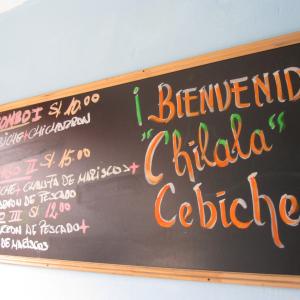 COMBO I S/ 10.00
BICHE+CHICHARRON
MBO II S/ 15.00
CHE+CHAUFA DE MARISCOS+
RRON DE PESCADO
O III S/ 12.00
RRON DE PESCADO+
DE MARISCOS
¡ BIENVENID
"Chilala"
Cebiche